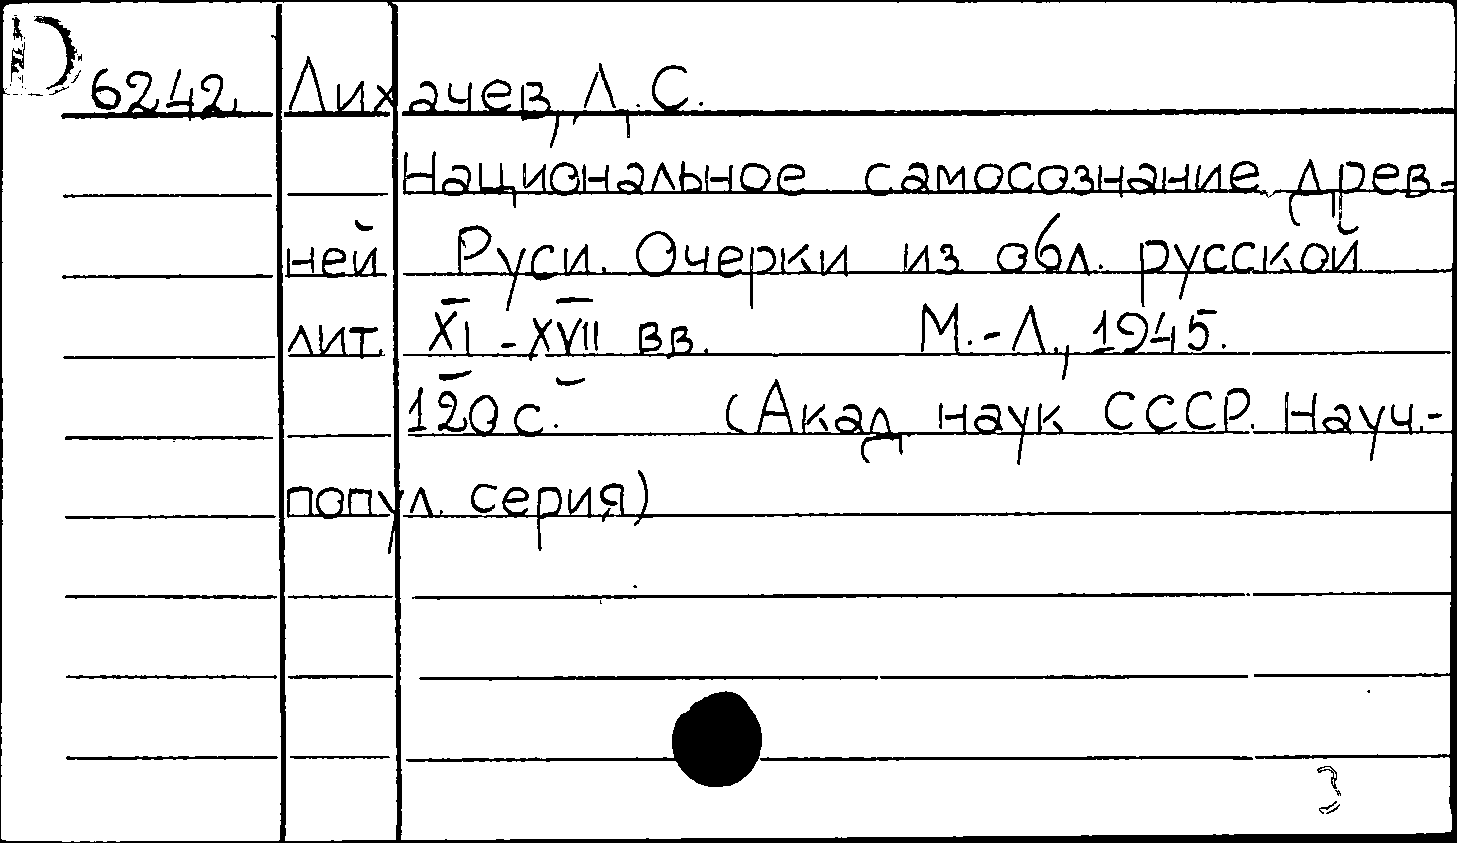 6242 Лихачев, Д.С.
Национальное самосознание древ-
ней Руси. Очерки из обл. русской
лит. XI-XVII вв. М.-Л., 1945.
120 с. (Акад. наук СССР. Науч.-
попул. серия)
3